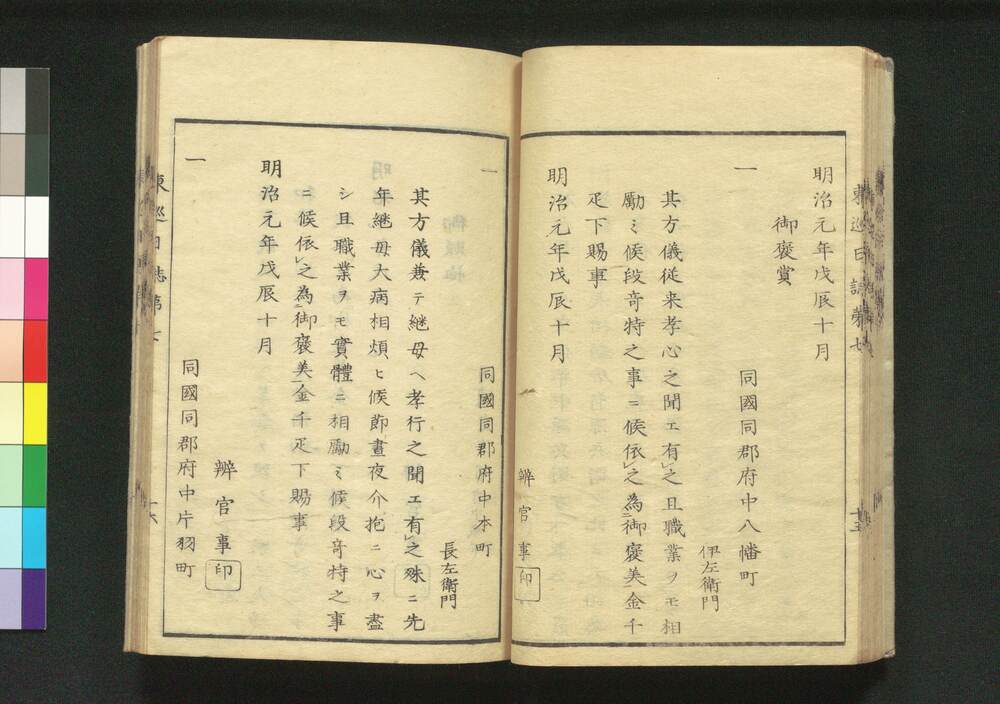 東巡日誌第七
十五
明治元年戊辰十月
御褒賞
一
同國同郡府中八幡町
伊左衛門
其方儀従来孝心之聞エ有レ之且職業ヲモ相
勵ミ候段竒特之事ニ候依レ之為御褒美金千
疋下賜事
明治元年戊辰十月
辨官事印
一
同國同郡府中本町
長左衛門
其方儀兼テ継母ヘ孝行之聞エ有レ之殊ニ先
年継毋大病相煩ヒ候節晝夜介抱ニ心ヲ盡
シ且職業ヲモ實體ニ相勵ミ候段竒特之事
ニ候依レ之為御褒美金千疋下賜事
明治元年戊辰十月
辨官事印
一
同國同郡府中片羽町
東巡日誌第七
十六